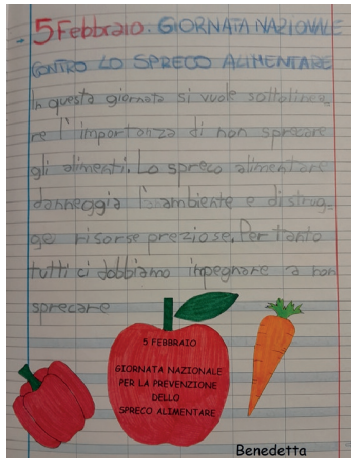 5 Febbraio. GIORNATA NAZIONALE
CONTRO LO SPRECO ALIMENTARE
In questa giornata si vuole sottolinea_
re l'importanza di non sprecare
gli alimenti. Lo spreco alimentare
danneggia l'ambiente e distrug_
ge risorse preziose. Per tanto
tutti ci dobbiamo impegnare a non
sprecare
5 FEBBRAIO
GIORNATA NAZIONALE
PER LA PREVENZIONE
DELLO
SPRECO ALIMENTARE
Benedetta